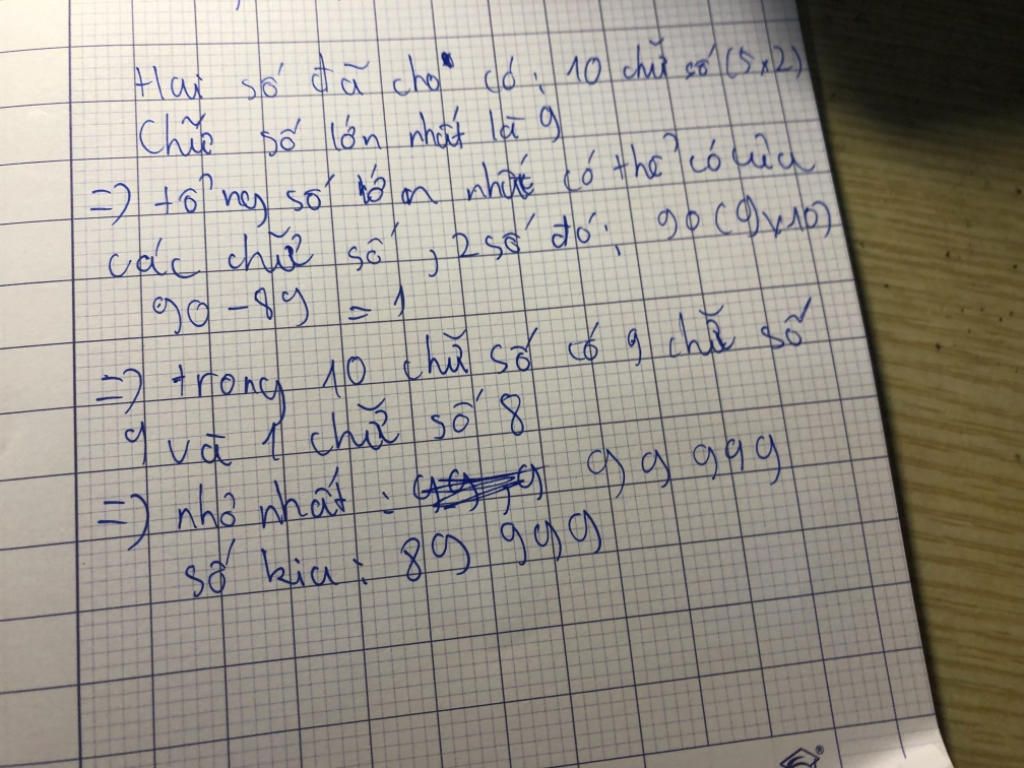 Hai số đã cho có: 10 chữ số (5x2)
Chữ số lớn nhất là 9
=> tổng số lớn nhất có thể có của
các chữ số, 2 số đó: 90 (9x10)
90 - 89 = 1
=> trong 10 chữ số có 9 chữ số
9 và 1 chữ số 8
=> nhỏ nhất: 99 999
số kia: 89 999